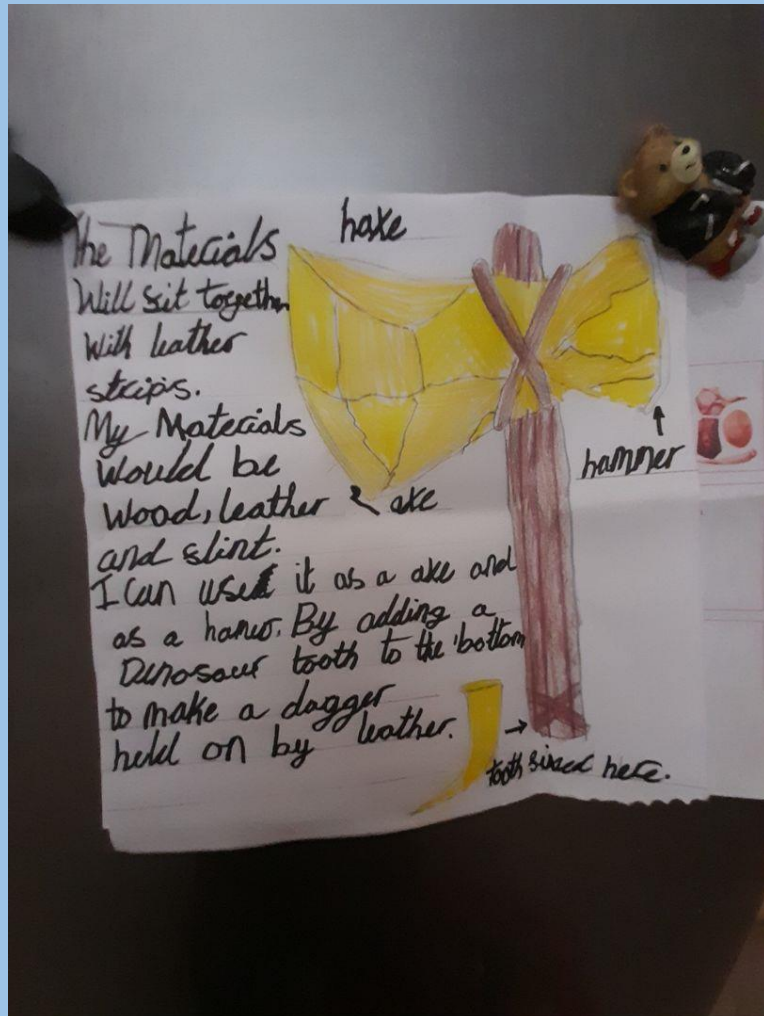 haxe
The Materials
Will sit together
With leather
strips.
My Materials
Would be
Wood, leather
and slint.
I can use it as a axe and
as a hamer. By adding a
Dinosaur tooth to the bottom
to make a dagger
held on by leather.
axe
hammer
tooth sixed here.